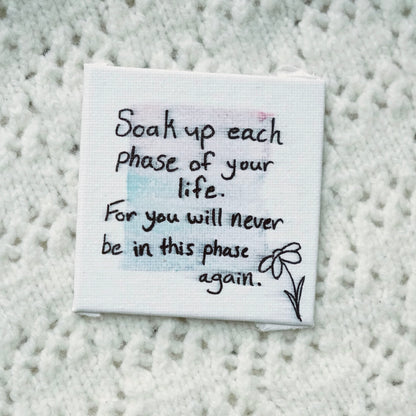 Soak up each
phase of your
life.
For you will never
be in this phase
again.